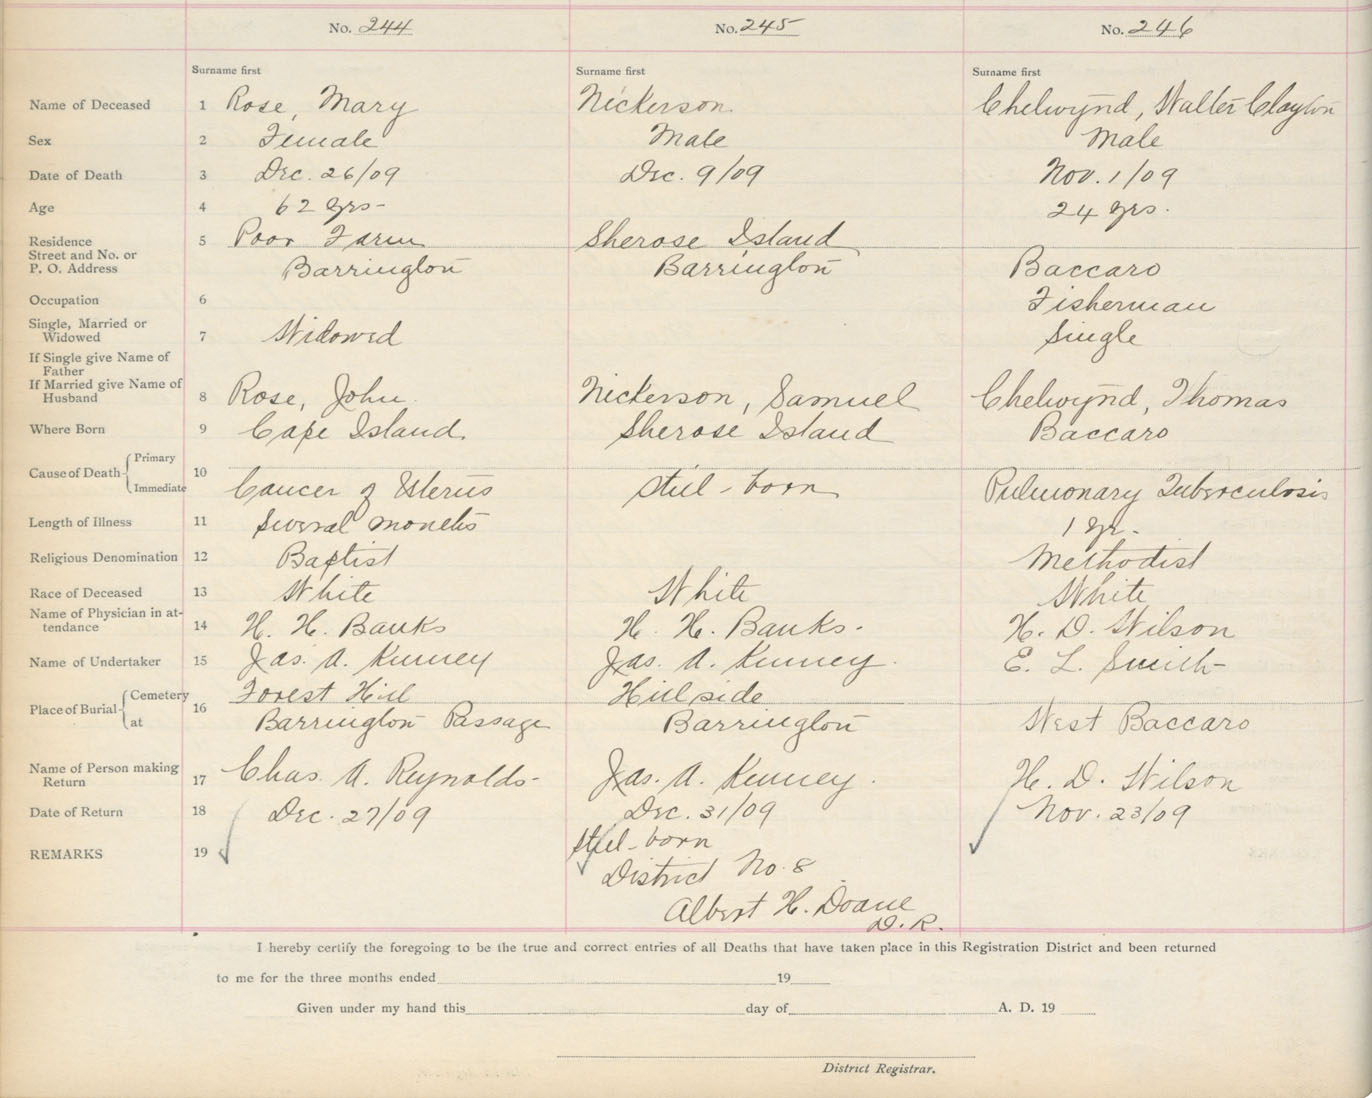 No. 244 No. 245 No. 246
Surname first Surname first Surname first
Name of Deceased 1 Rose, Mary Nickerson Chelwynd, Walter Clayton
Sex 2 Female Male Male
Date of Death 3 Dec. 26/09 Dec. 9/09 Nov. 1/09
Age 4 62 yrs- 24 yrs.
Residence 5 Poor Farm Sherose Island
Street and No. or
P. O. Address Barrington Barrington Baccaro
Occupation 6 Fisherman
Single, Married or
Widowed 7 Widowed Single
If Single give Name of
Father
If Married give Name of
Husband 8 Rose, John. Nickerson, Samuel Chelwynd, Thomas
Where Born 9 Cape Island. Sherose Island Baccaro
Primary
Cause of Death 10
Immediate Cancer of Uterus still-born Pulmonary Tuberculosis
Length of Illness 11 Several months 1 yr.
Religious Denomination 12 Baptist Methodist
Race of Deceased 13 White White White
Name of Physician in at-
tendance 14 H. H. Banks H. H. Banks. H. D. Wilson
Name of Undertaker 15 Jas. A. Kinney Jas. A. Kinney. E. L. Smith
Cemetery Forest Hill Hillside
Place of Burial 16
at Barrington Passage Barrington West Baccaro
Name of Person making
Return 17 Chas. A. Reynolds- Jas. A. Kinney. H. D. Wilson
Date of Return 18 Dec. 27/09 Dec. 31/09 Nov. 23/09
REMARKS 19 still-born
District No. 8
Albert H. Doane
D. R.
I hereby certify the foregoing to be the true and correct entries of all Deaths that have taken place in this Registration District and been returned
to me for the three months ended 19
Given under my hand this day of A. D. 19
District Registrar.